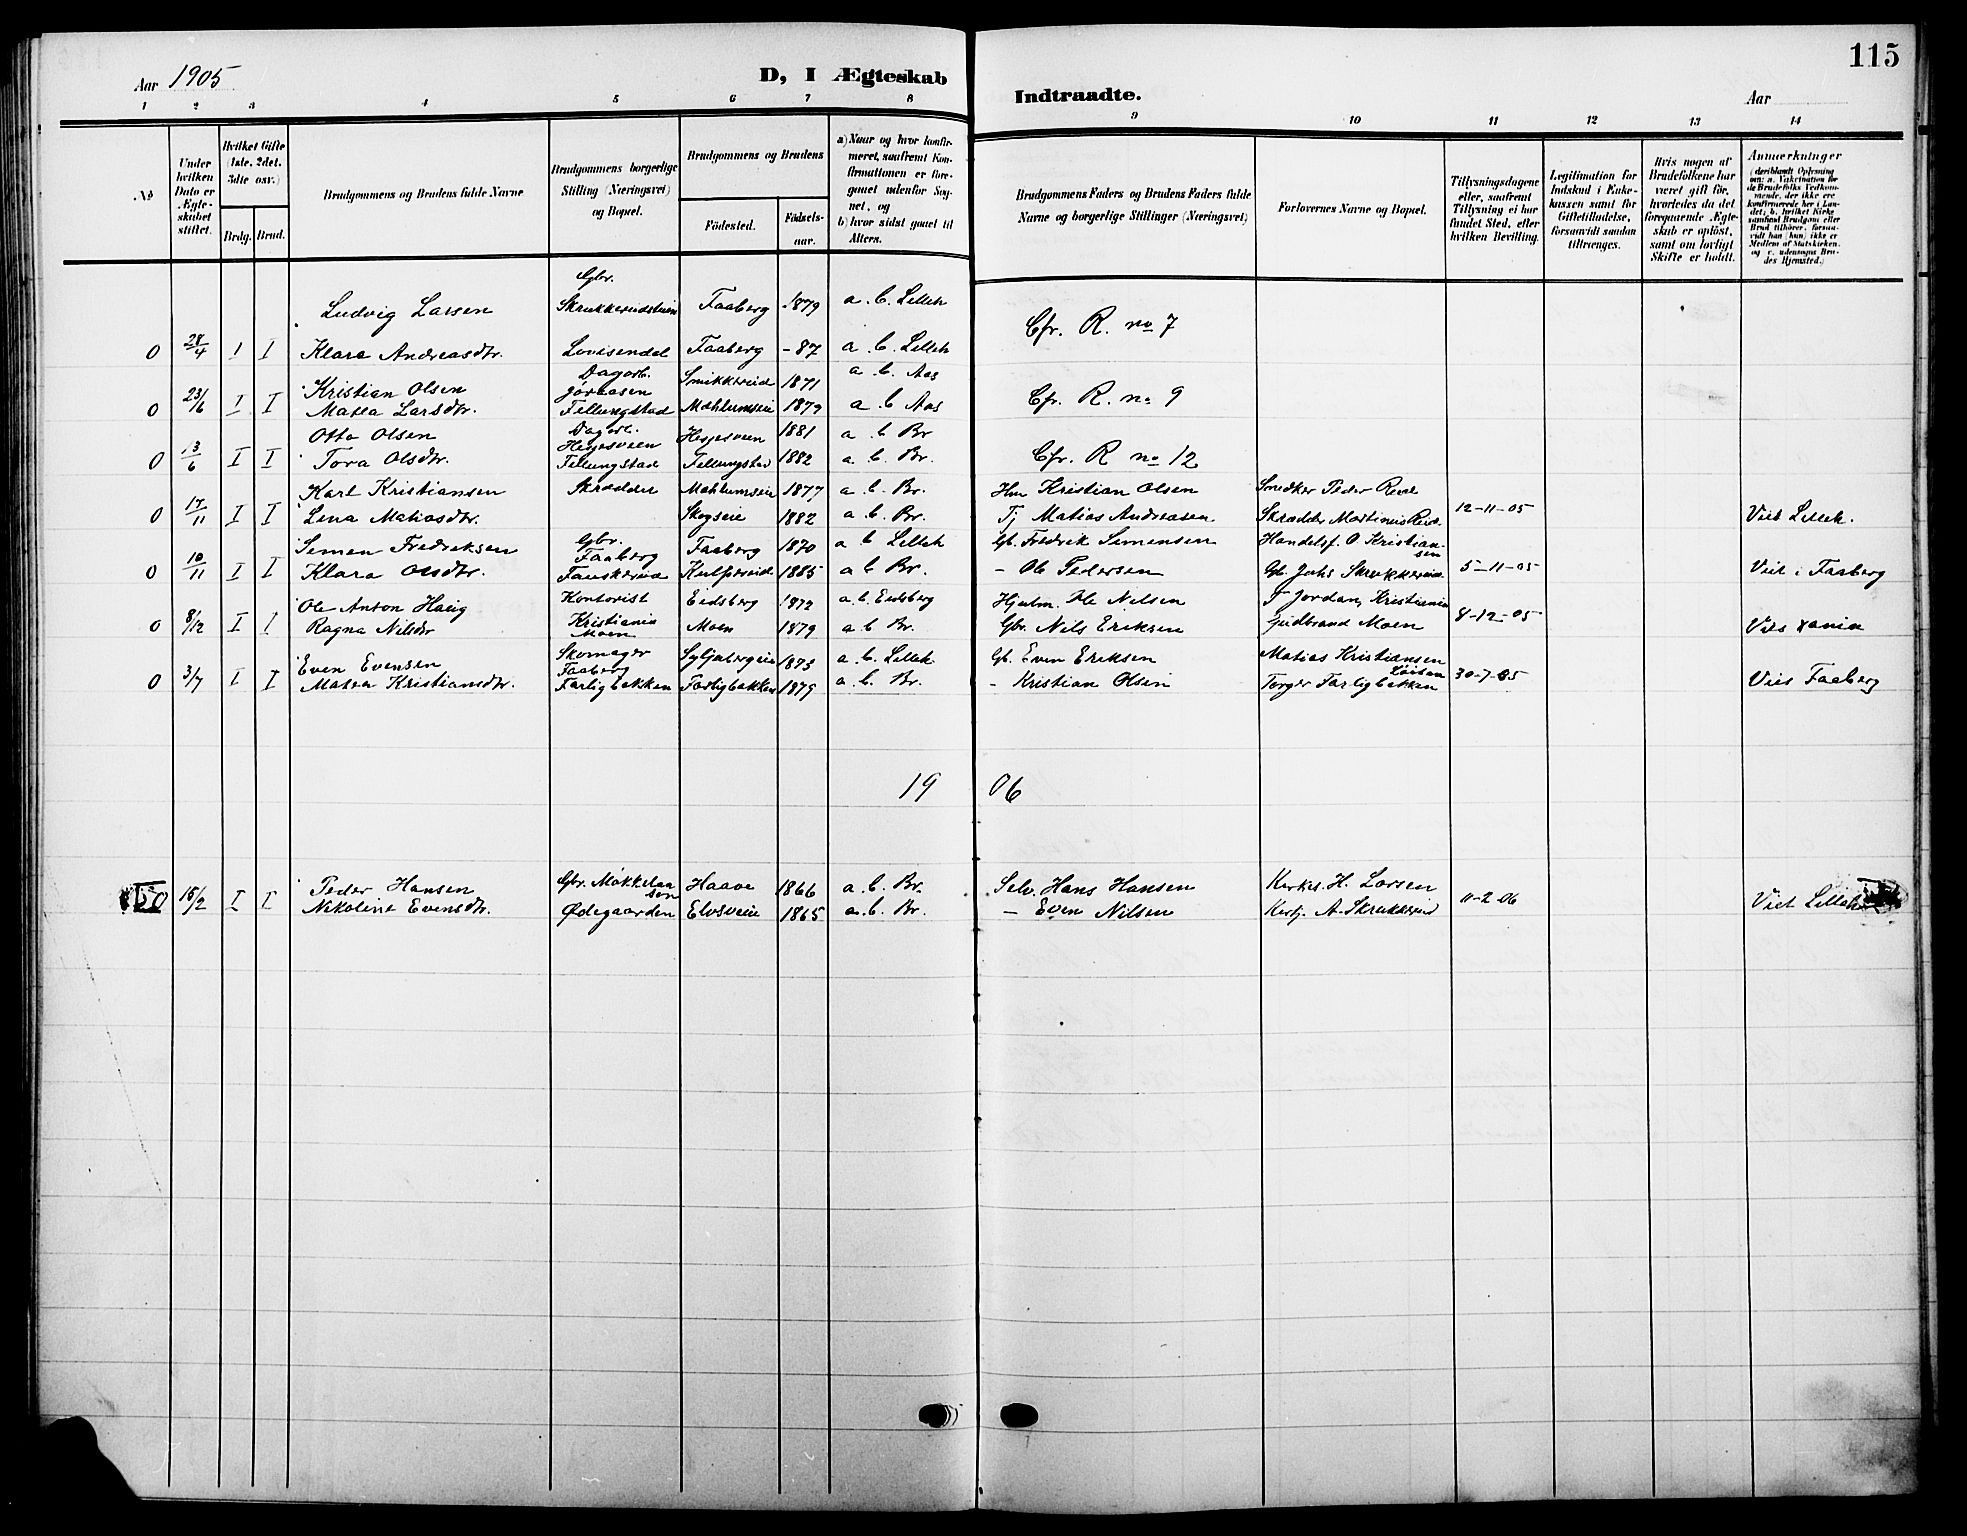 115
Aar 1905
D, I Ægteskab
Indtraadte.
Aar
1 2 3 4 5 6 7 8 9 10 11 12 13 14
No
Under hvilken Dato er Ægteskabet stiftet.
Hvilket Gifte (1ste, 2det, 3die osv.)
Brdg. Brud.
Brudgommens og Brudens fulde Navne
Brudgommens borgerlige Stilling (Næringsvei) og Bopæl.
Brudgommens og Brudens
Fødested. Fødselsaar.
a) Naar og hvor konfirmeret, saafremt Konfirmationen er foregaaet udenfor Sognet, og
b) hvor sidst gaaet til Alters.
Brudgommens Faders og Brudens Faders fulde Navne og borgerlige Stillinger (Næringsvei)
Forlovernes Navne og Bopæl.
Tillysningsdagene eller, saafremt Tillysning ei har fundet Sted, efter hvilken Bevilling.
Legitimation for Indskud i Enkekassen samt for Giftetilladelse, forsaavidt saadan tiltrænges.
Hvis nogen af Brudefolkene har været gift før, hvorledes da det foregaaende Ægteskab er opløst, samt om lovligt Skifte er holdt.
Anmærkninger (deriblandt Oplysning om: a. Vakcination for de Brudefolks Vedkommende, der ikke ere konfirmerede her i Landet; b. hvilket Kirkesamfund Brudgom eller Brud tilhører, forsaavidt han (hun) ikke er Medlem af Statskirken, og c. udensogns Brudes Hjemsted.)
Gbr.
Ludvig Larsen Skrukkerudstuen Faaberg 1879 a. b. Lilleh
Cfr. R. no 7
0 28/4 I I Klara Andreasdtr. Lovisendal Faaberg - 87 a. b. Lilleh
Dagarb.
Kristian Olsen Smikkerud 1871 a. b. Aas
0 23/6 I I Matea Larsdtr. Fellungstad Mæhlumseie 1879 a. b. Aas
Cfr. R. no 9
Otto Olsen Dagarb. Hesjesveen Hesjesveen 1881 a b Br
0 13/6 I I Tora Olsdtr. Fellungstad Fellungstad 1882 a b. Br.
Cfr. R no 12
Karl Kristiansen Skrædder Mæhlumseie 1877 a b. Br. Hm Kristian Olsen Snedker Peder Reise
0 17/11 I I Lena Matiasdtr. Skogseie 1882 a b. Br. Tj Matias Andreasen Skrædder Martinius 12-11-05 Viet Lilleh.
Simen Fredriksen Gbr. Faaberg Faaberg 1870 a b Lilleh Gb. Fredrik Simensen Handelsf. O Kristiansen
0 10/11 I I Klara Olsdtr. Fauskerud Kulpérud 1885 a b Br. - Ole Pedersen Gb. Johs Skrukkerud 5-11-05 Viet i Faaberg
Ole Anton Haug Kontorist Kristiania Eidsberg 1872 a. b. Eidsberg Hjulm. Ole Nilsen T Jordan, Kristiania
0 8/12 I I Ragna Nilsdtr Moen Moen 1879 a b Br. Gbr. Nils Eriksen Gudbrand Moen 8-12-05 Viet Xania
Even Evensen Skomager Faaberg 1873 a. b. Lilleh Gb. Even Eriksen Matias Kristiansen
0 3/7 I I Matea Kristiansdtr. Farligbakken Farligbakken 1879 a. b. Br. - Kristian Olsen Torger Farligbakken 30-7-05 Viet Faaberg
19 06
Peder Hansen Gbr. Haave 1866 a. b. Br. Selv. Hans Hansen Kirkes. H. Larsen
0 15/2 I I Nikoline Evensdtr. Ødegaarden Elvsveie 1865 a. b. Br. - Even Nilsen Kirkj. A. Skrukkerud 11-2-06 Viet Lilleh